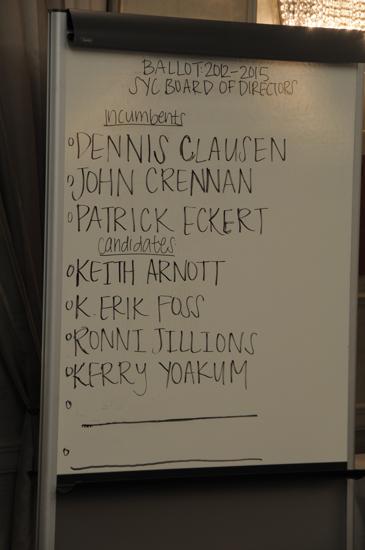 BALLOT: 2012-2015
SYC BOARD OF DIRECTORS
incumbents
DENNIS CLAUSEN
JOHN CRENNAN
PATRICK ECKERT
candidates
KEITH ARNOTT
K. ERIK FOSS
RONNI JILLIONS
KERRY YOAKUM